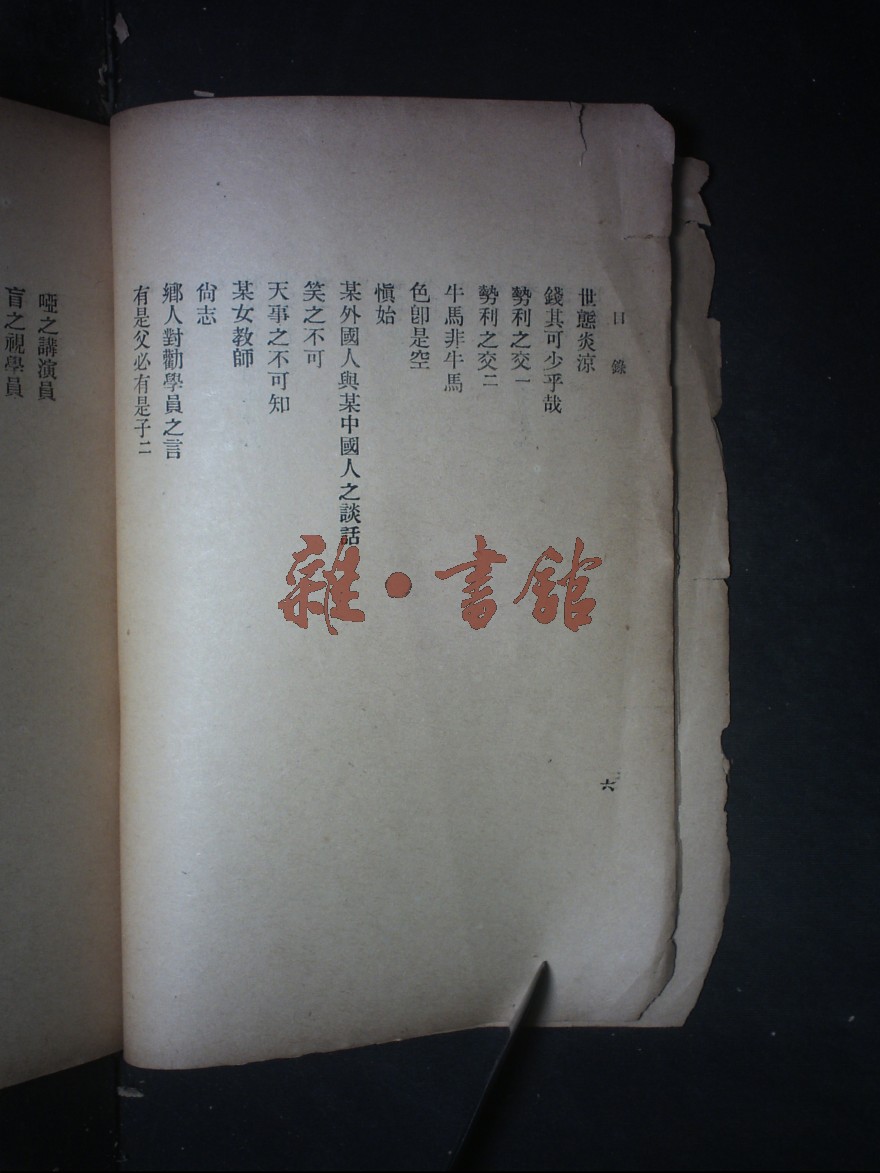 目錄
世態炎涼
錢其可少乎哉
勢利之交一
勢利之交二
牛馬非牛馬
色卽是空
愼始
某外國人與某中國人之談話
笑之不可
天事之不可知
某女教師
尙志
鄕人對勸學員之言
有是父必有是子二
六
啞之講演員
盲之視學員
雜·書館